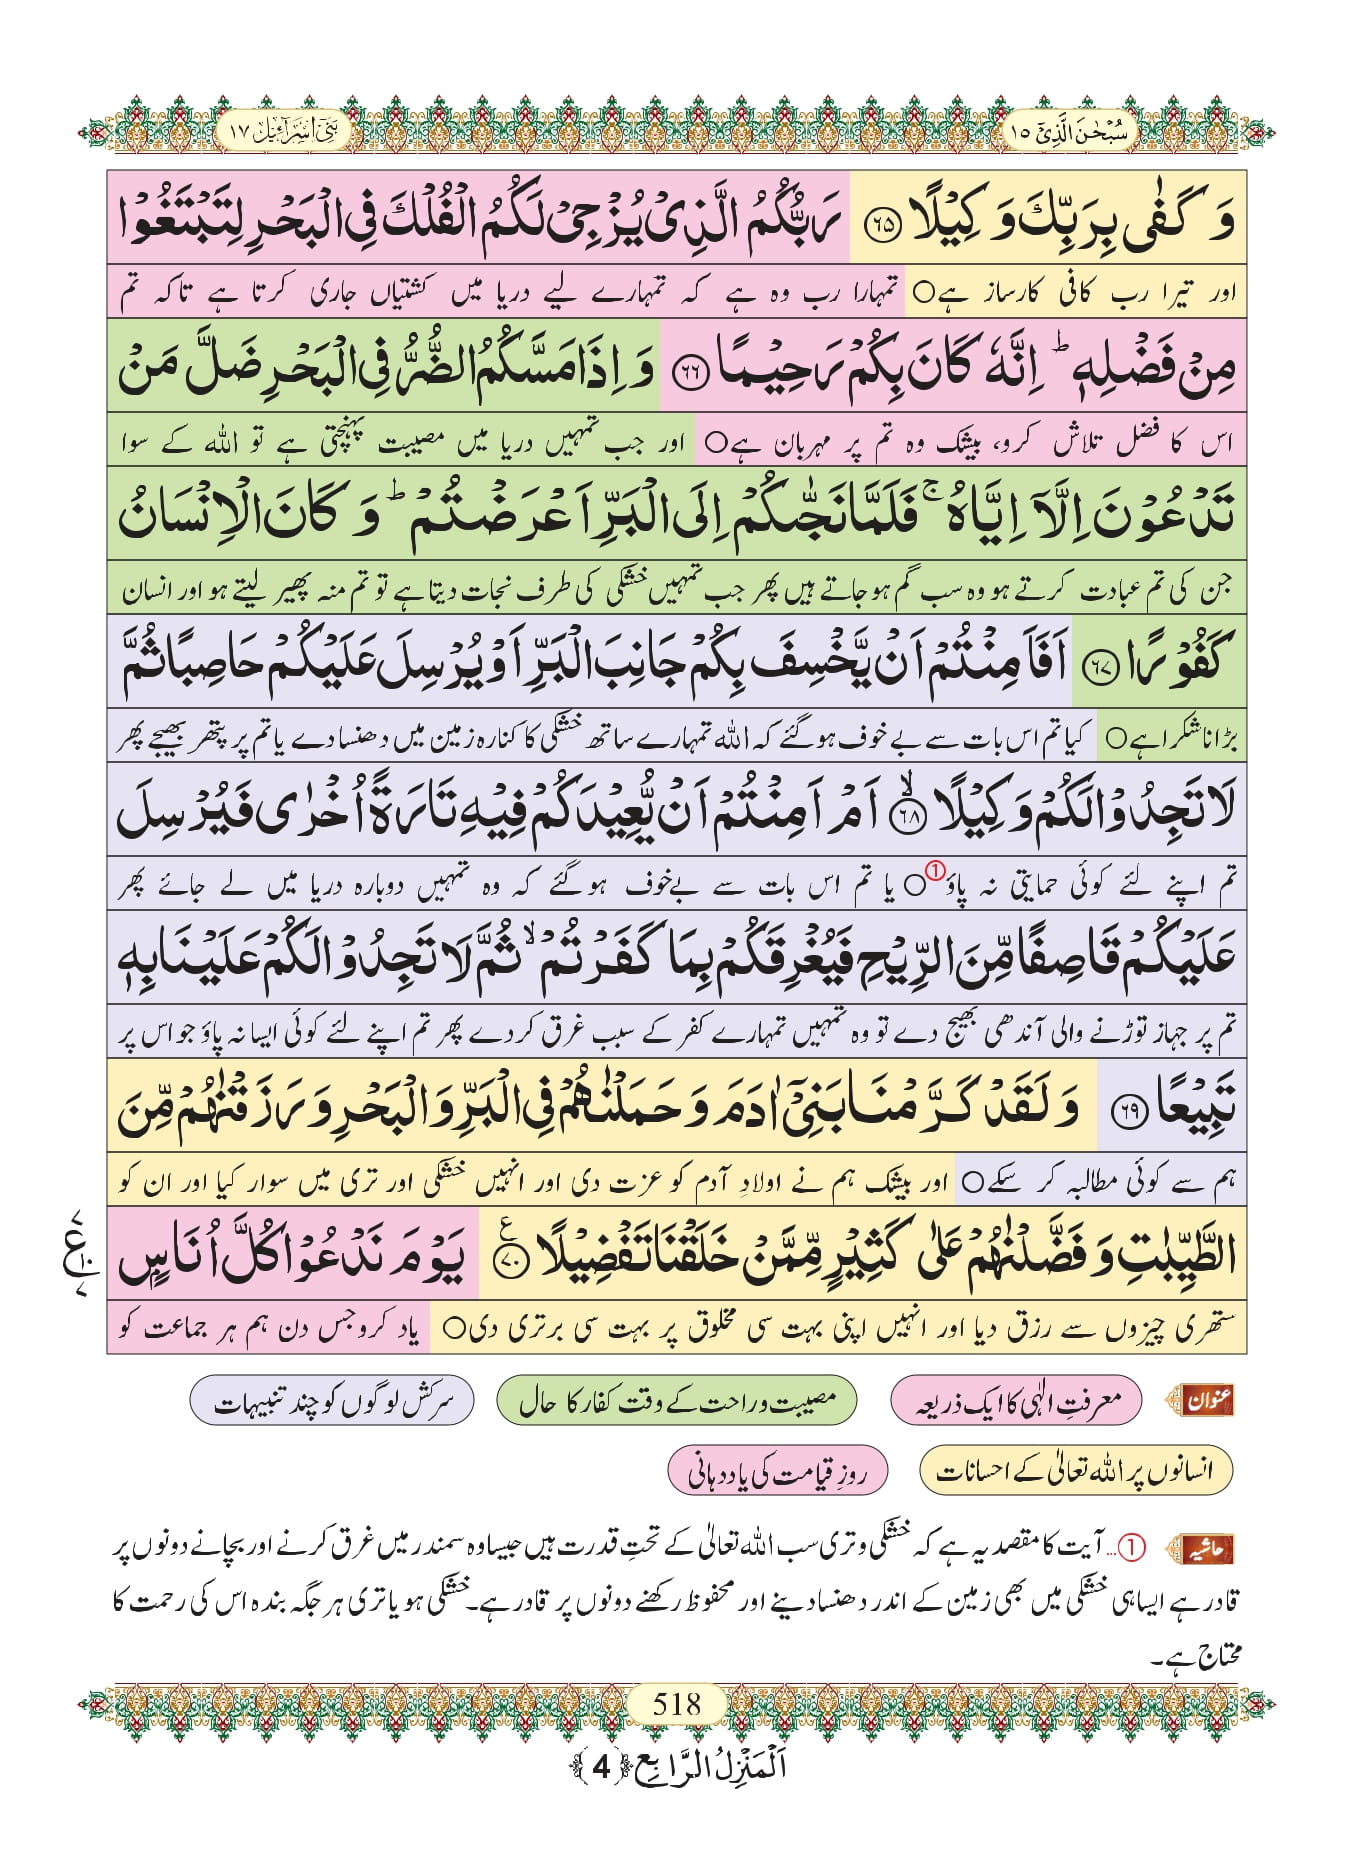 سُبْحٰنَ الَّذِیْۤ ۱۵
بَنِیْۤ اِسْرَآءِیْل ۱۷
وَ كَفٰى بِرَبِّكَ وَكِیْلًا ﴿۶۵﴾ رَبُّكُمُ الَّذِیْ یُزْجِیْ لَكُمُ الْفُلْكَ فِی الْبَحْرِ لِتَبْتَغُوْا
اور تیرا رب کافی کارساز ہے○ تمہارا رب وہ ہے کہ تمہارے لیے دریا میں کشتیاں جاری کرتا ہے تاکہ تم
مِنْ فَضْلِهٖؕ اِنَّهٗ كَانَ بِكُمْ رَحِیْمًا ﴿۶۶﴾ وَ اِذَا مَسَّكُمُ الضُّرُّ فِی الْبَحْرِ ضَلَّ مَنْ
اس کا فضل تلاش کرو، بیشک وہ تم پر مہربان ہے○ اور جب تمہیں دریا میں مصیبت پہنچتی ہے تو اللہ کے سوا
تَدْعُوْنَ اِلَّاۤ اِیَّاهُۚ فَلَمَّا نَجّٰىكُمْ اِلَى الْبَرِّ اَعْرَضْتُمْؕ وَ كَانَ الْاِنْسَانُ
جن کی تم عبادت کرتے ہو وہ سب گم ہو جاتے ہیں پھر جب تمہیں خشکی کی طرف نجات دیتا ہے تو تم منہ پھیر لیتے ہو اور انسان
كَفُوْرًا ﴿۶۷﴾ اَفَاَمِنْتُمْ اَنْ یَّخْسِفَ بِكُمْ جَانِبَ الْبَرِّ اَوْ یُرْسِلَ عَلَیْكُمْ حَاصِبًا ثُمَّ
بڑا ناشکرا ہے○ کیا تم اس بات سے بے خوف ہو گئے کہ اللہ تمہارے ساتھ خشکی کا کنارہ زمین میں دھنسا دے یا تم پر پتھر بھیجے پھر
لَا تَجِدُوْا لَكُمْ وَكِیْلًاۙ ﴿۶۸﴾ اَمْ اَمِنْتُمْ اَنْ یُّعِیْدَكُمْ فِیْهِ تَارَةً اُخْرٰى فَیُرْسِلَ
تم اپنے لئے کوئی حمایتی نہ پاؤ① ○ یا تم اس بات سے بےخوف ہو گئے کہ وہ تمہیں دوبارہ دریا میں لے جائے پھر
عَلَیْكُمْ قَاصِفًا مِّنَ الرِّیْحِ فَیُغْرِقَكُمْ بِمَا كَفَرْتُمْۙ ثُمَّ لَا تَجِدُوْا لَكُمْ عَلَیْنَا بِهٖ
تم پر جہاز توڑنے والی آندھی بھیج دے تو وہ تمہیں تمہارے کفر کے سبب غرق کر دے پھر تم اپنے لئے کوئی ایسا نہ پاؤ جو اس پر
تَبِیْعًا ﴿۶۹﴾ وَ لَقَدْ كَرَّمْنَا بَنِیْۤ اٰدَمَ وَ حَمَلْنٰهُمْ فِی الْبَرِّ وَ الْبَحْرِ وَ رَزَقْنٰهُمْ مِّنَ
ہم سے کوئی مطالبہ کر سکے○ اور بیشک ہم نے اولادِ آدم کو عزت دی اور انہیں خشکی اور تری میں سوار کیا اور ان کو
الطَّیِّبٰتِ وَ فَضَّلْنٰهُمْ عَلٰى كَثِیْرٍ مِّمَّنْ خَلَقْنَا تَفْضِیْلًا ﴿۷۰﴾ع یَوْمَ نَدْعُوْا كُلَّ اُنَاسٍۭ
۷ ع۱۰ ۷
ستھری چیزوں سے رزق دیا اور انہیں اپنی بہت سی مخلوق پر بہت سی برتری دی○ یاد کرو جس دن ہم ہر جماعت کو
عنوان معرفتِ الٰہی کا ایک ذریعہ مصیبت و راحت کے وقت کفار کا حال سرکش لوگوں کو چند تنبیہات
انسانوں پر اللہ تعالیٰ کے احسانات روزِ قیامت کی یاد دہانی
حاشیہ ①... آیت کا مقصد یہ ہے کہ خشکی و تری سب اللہ تعالیٰ کے تحتِ قدرت ہیں جیسا وہ سمندر میں غرق کرنے اور بچانے دونوں پر
قادر ہے ایسا ہی خشکی میں بھی زمین کے اندر دھنسا دینے اور محفوظ رکھنے دونوں پر قادر ہے۔ خشکی ہو یا تری ہر جگہ بندہ اس کی رحمت کا
محتاج ہے۔
518
اَلْمَنْزِلُ الرَّابِع ﴿4﴾